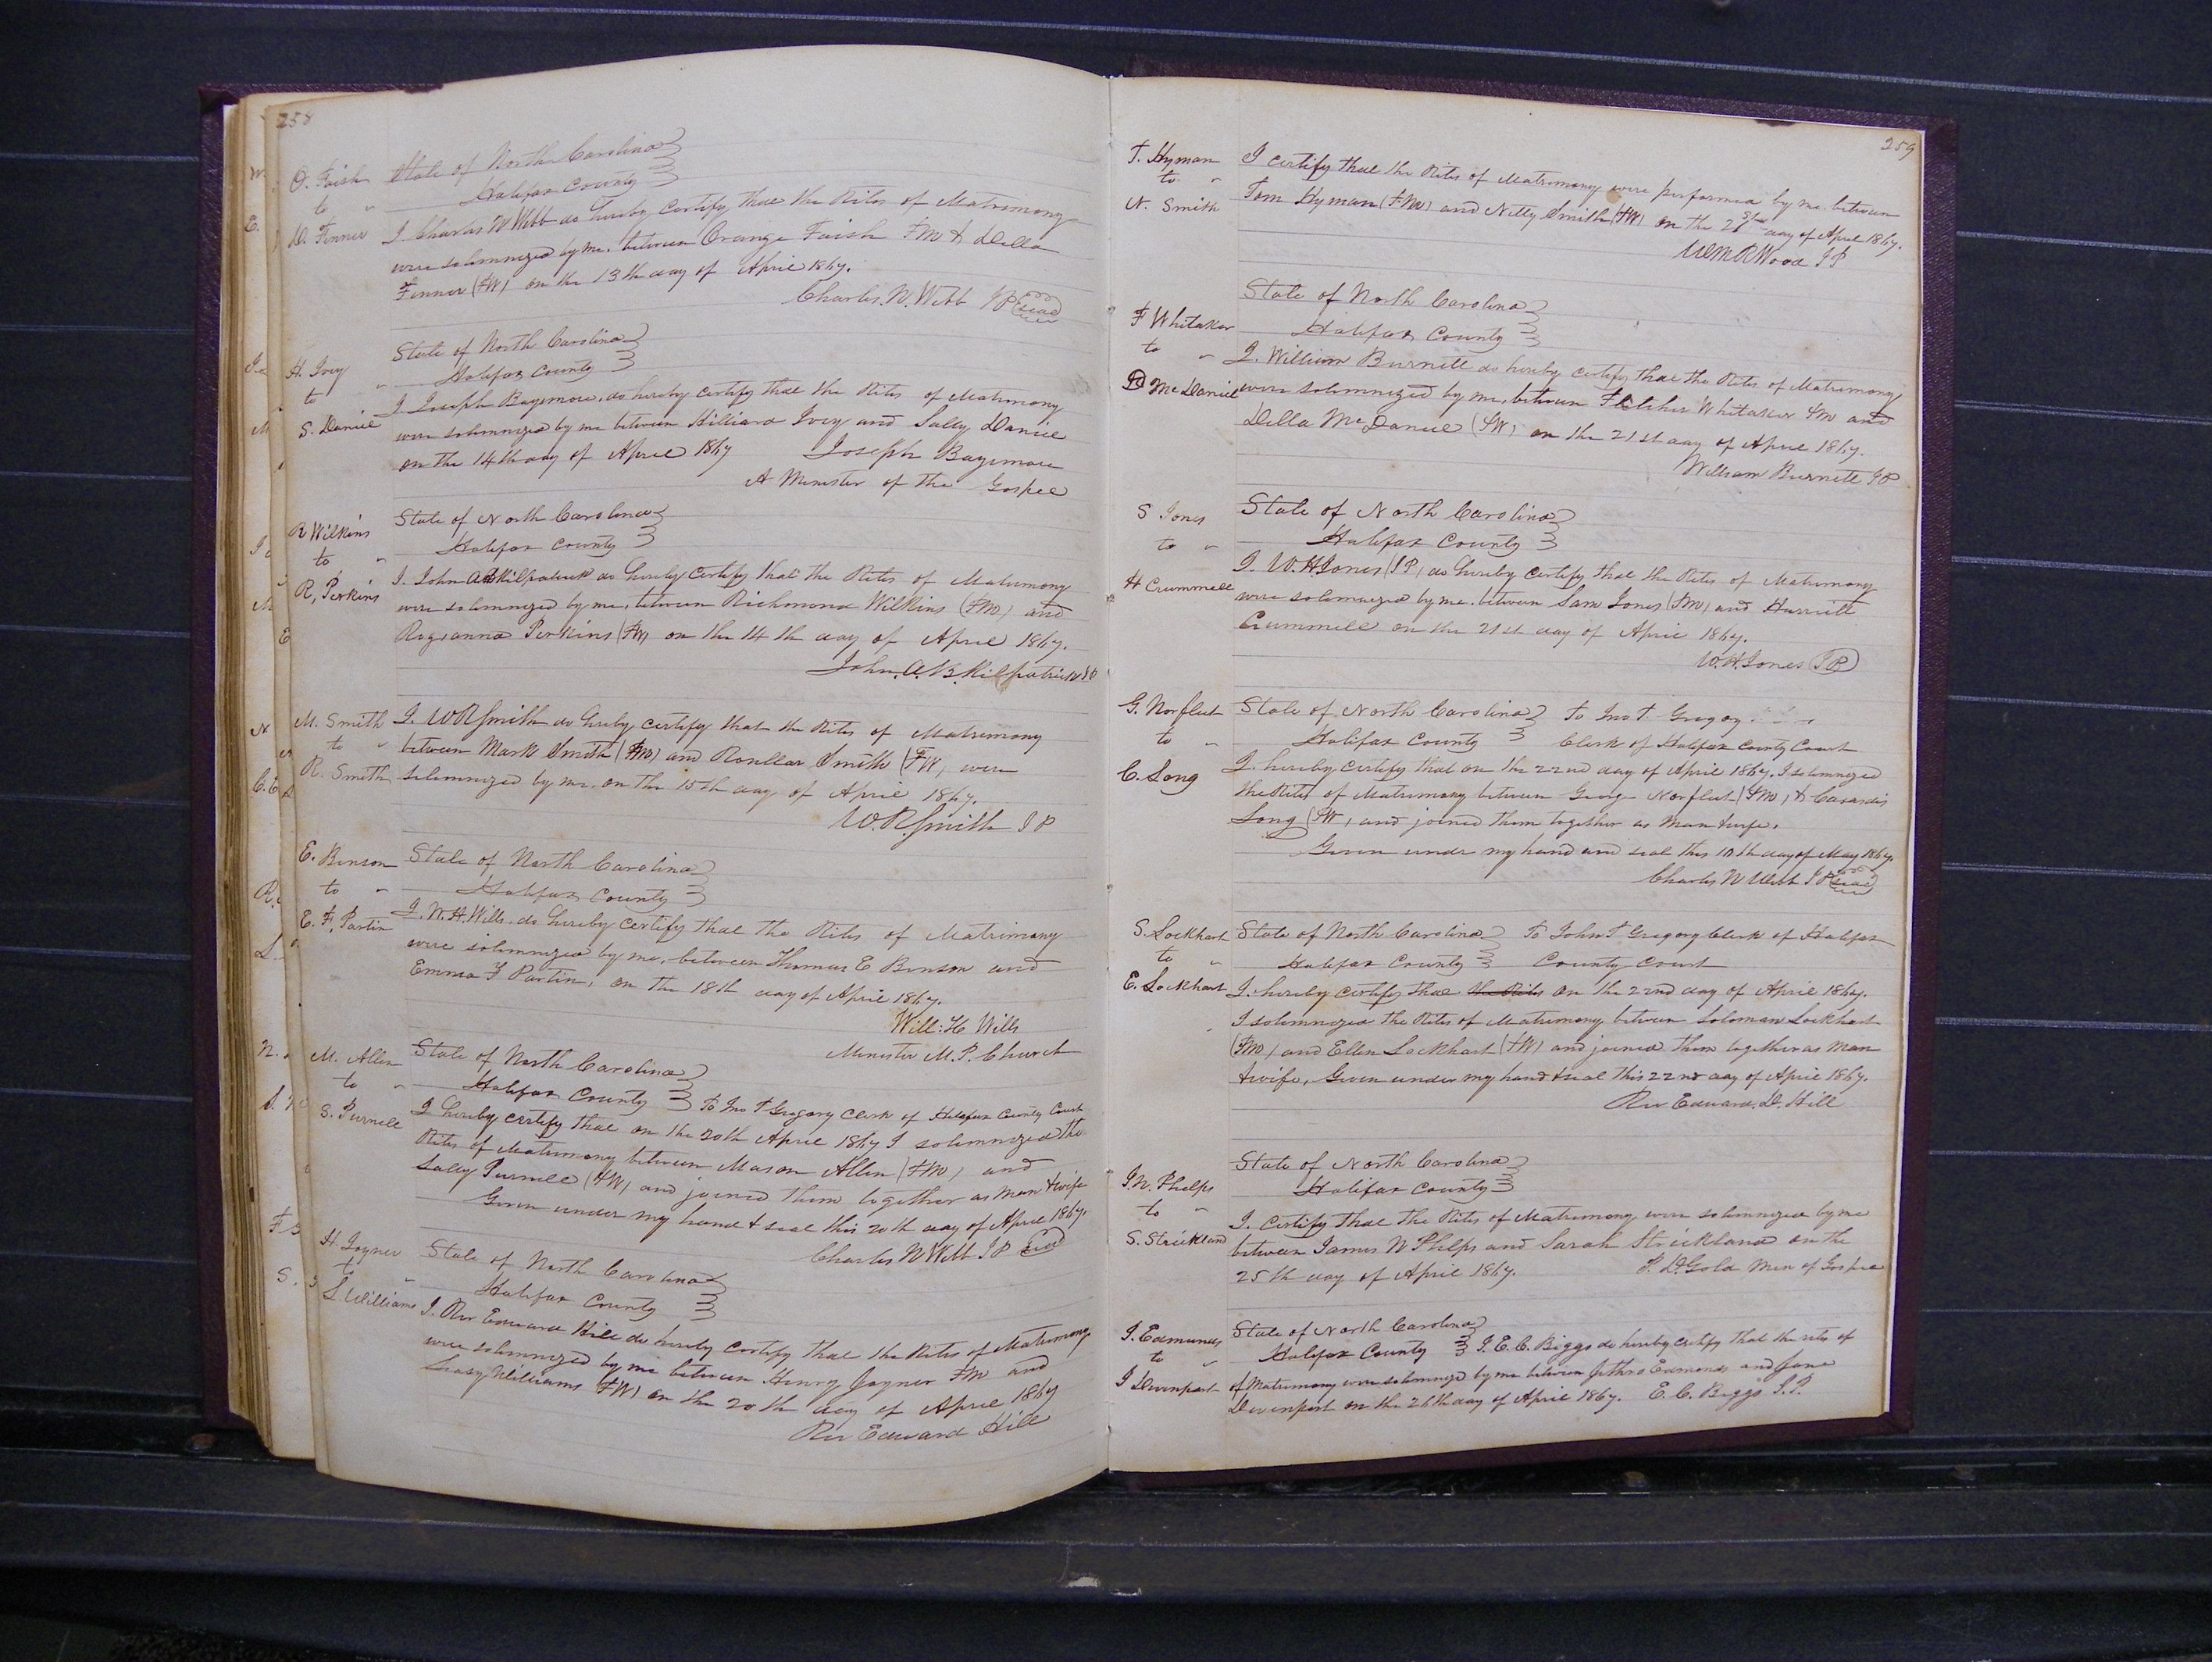 258
O. Faish
to "
D. Finner
State of North Carolina
Halifax County
I Charles N Webb do hereby certify that the Rites of Matrimony
were solemnized by me, between Orange Faish FM & Della
Finner (FW) on the 13th day of April 1867.
Charles. N. Webb JP Seal
H. Ivey
to "
S. Daniel
State of North Carolina
Halifax County
I Joseph Bazemore, do hereby certify that the Rites of Matrimony
were solemnized by me between Hilliard Ivey and Sally Daniel
on the 14th day of April 1867
Joseph Bazemore
A Minister of the Gospel
R Wilkins
to "
R, Perkins
State of North Carolina
Halifax County
I. John AB Kilpatrick do hereby certify that the Rites of Matrimony
were solemnized by me, between Richmond Wilkins (FM) and
Roxanna Perkins (FW) on the 14th day of April 1867.
John. A. B. Kilpatrick
M. Smith
to "
R. Smith
I. WR Smith do hereby certify that the Rites of Matrimony
between Mark Smith (FM) and Smith (FW, were
solemnized by me, on the 15th day of April 1867.
W. R. Smith JP
E. Binson
to "
E. F, Partin
State of North Carolina
Halifax County
I. W. H. Wills. do hereby certify that the Rites of Matrimony
were solemnized by me, between Thomas E Binson and
Emma F Partin, on the 18th day of April 1867.
Will: H Wills
Minister M. P. Church
M. Allen
to "
S. Purnell
State of North Carolina
Halifax County To Jno T Gregory Clerk of Halifax County Court
I hereby certify that on the 20th April 1867 I solemnized the
Rites of Matrimony between Mason Allen (FM) and
Sally Purnell (FW) and joined them together as man & wife
Given under my hand & seal this 20th day of April 1867.
Charles N Webb. JP Seal
H. Joyner
to "
L. Williams
State of North Carolina
Halifax County
I. Rev Edward Hill do hereby certify that the Rites of Matrimony
were solemnized by me between Henry Joyner FM and
Williams (FW) on the 20th day of April 1867
Rev Edward Hill
259
T. Hyman
to "
N. Smith
I certify that the Rites of Matrimony were performed by me. between
Tom Hyman (FM) and Nelly Smith (FW) on the day of April 1867.
WmRWood JP
F Whitaker
to "
D McDaniel
State of North Carolina
Halifax County
I. William Burnett do hereby certify that the Rites of Matrimony
were solemnized by me, between Fletcher Whitaker FM and
Della McDaniel (FW) on the 21st day of April 1867.
William Burnett JP
S Jones
to "
H Crummell
State of North Carolina
Halifax County
I. W. H. Jones (JP, do hereby certify that the Rites of Matrimony
were solemnized by me. between Sam Jones (FM) and Harriett
Crummell on the 21st day of April 1867.
W. H. Jones JP
G. Norfleet
to "
C. Long
State of North Carolina To Jno T Gregory
Halifax County Clerk of Halifax County Court
I. hereby certify that on the 22nd day of April 1867. I solemnized
the Rites of Matrimony between George Norfleet (FM) &
Long (FW, and joined them together as man & wife.
Given under my hand and seal this day of May 1867.
Charles N Webb JP Seal
S. Lockhart
to "
E. Lockhart
State of North Carolina To John T Gregory Clerk of Halifax
Halifax County County Court
I. hereby certify that the Rites on the 22nd day of April 1867.
I solemnized the Rites of Matrimony between Soloman Lockhart
(FM) and Ellen Lockhart (FW) and joined them together as man
& wife, Given under my hand & seal this 22nd day of April 1867.
Rev Edward. D. Hill
J. N. Phelps
to "
S. Strickland
State of North Carolina
Halifax County
I. Certify that the Rites of Matrimony were solemnized by me
between James N Phelps and Sarah Strickland on the
25th day of April 1867. P. D. Gold Min of Gospel
J. Edmunds
to "
J Devenport
State of North Carolina
Halifax County I. E. C. Biggs do hereby certify that the rites of
of Matrimony were solemnized by me between Jethro Edmonds and Jane
Devenport on the 26th day of April 1867. E. C. Biggs J.P.